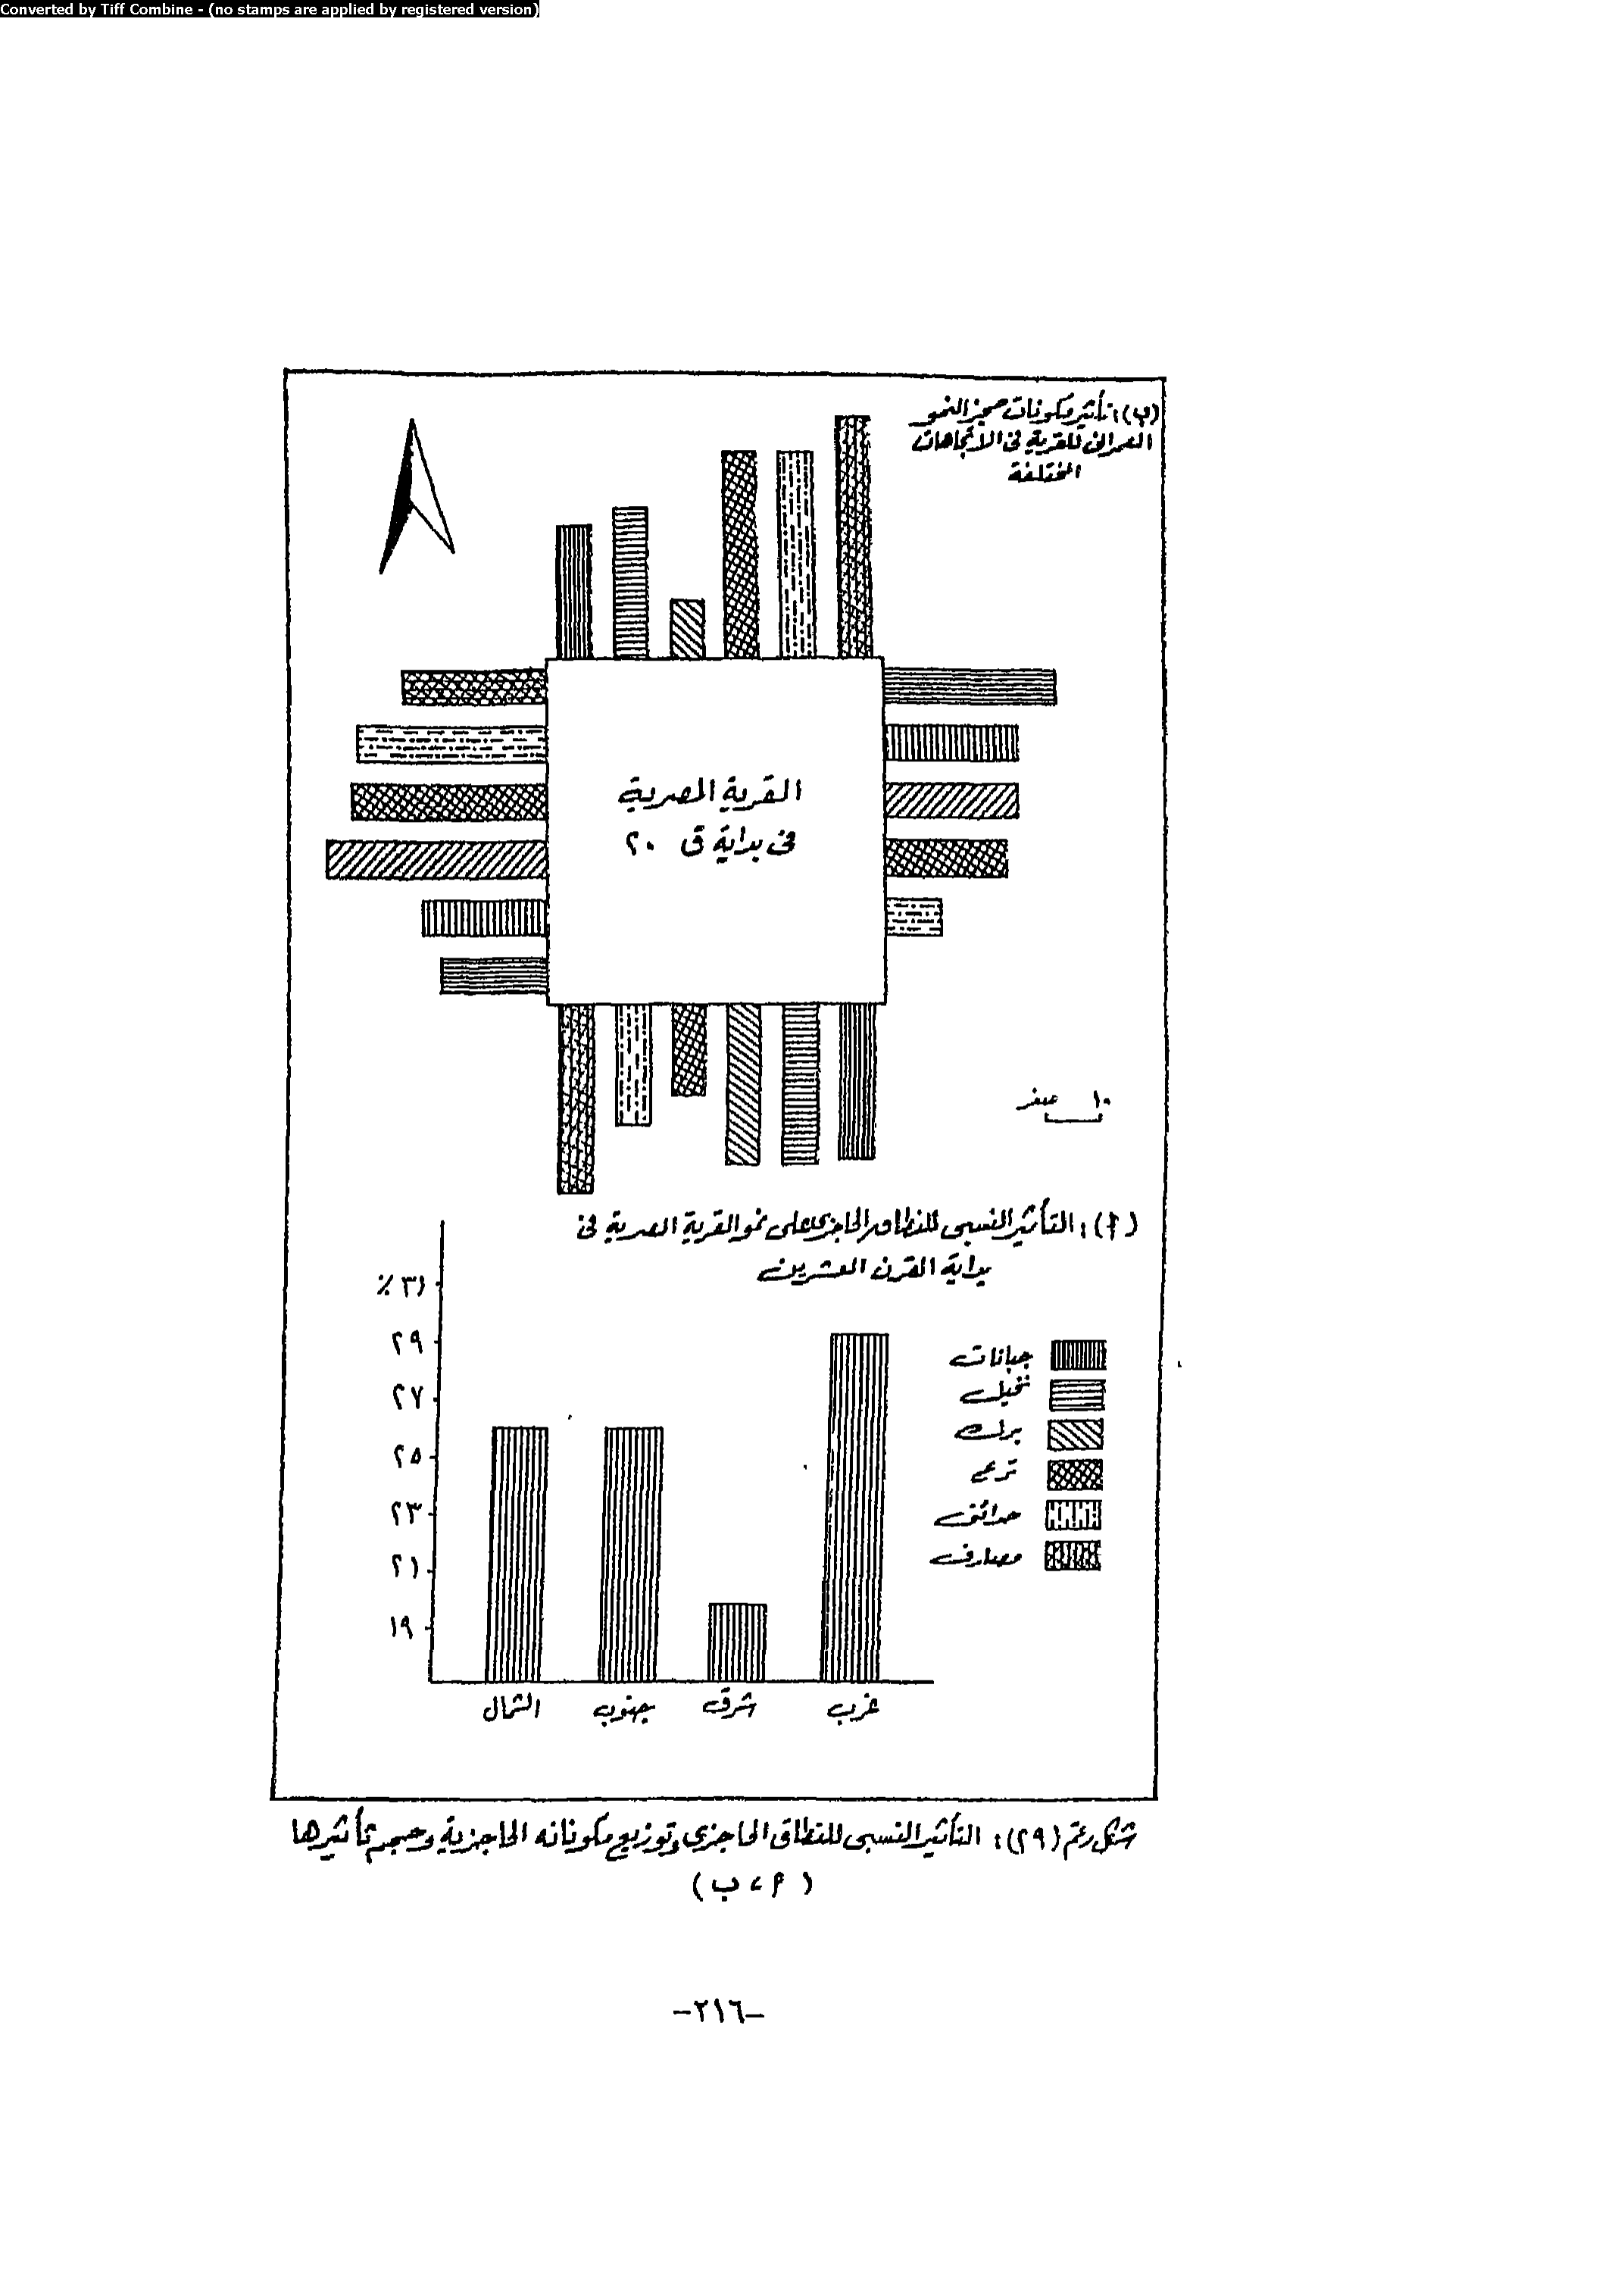 Converted by Tiff Combine - (no stamps are applied by registered version)
(ب): تأثير مكونات حجز النمو
العمرانى للقرية فى الاتجاهات
المختلفة
القرية المصرية
فى بداية ق ٢٠
١٠ صفر
(أ): التأثير النسبى للنطاق الحاجزى على نمو القرية المصرية فى
بداية القرن العشرين
٣١ ٪
٢٩
٢٧
٢٥
٢٣
٢١
١٩
الشمال
جنوب
شرق
غرب
جبانات
نخيل
برك
ترع
حدائق
مصارف
شكل رقم (٢٩): التأثير النسبى للنطاق الحاجزى وتوزيع مكوناته الحاجزية وحجم تأثيرها
(أ، ب)
-٢١٦-